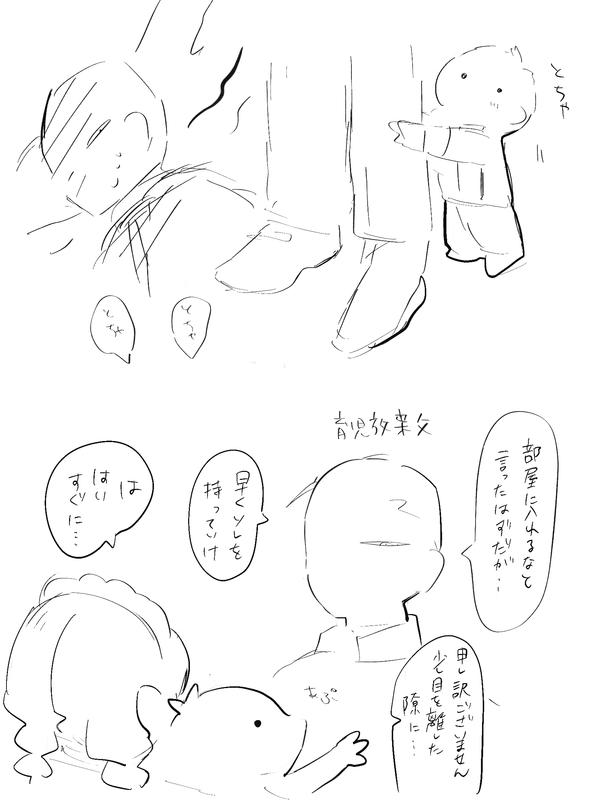 とちゃ
とちゃ
とちゃ
育児放棄父
部屋に入れるなと
言ったはずだが…
早くソレを
持っていけ
申し訳ございません
少し目を離した
隙に…
あぷ
は
はい
すぐに…